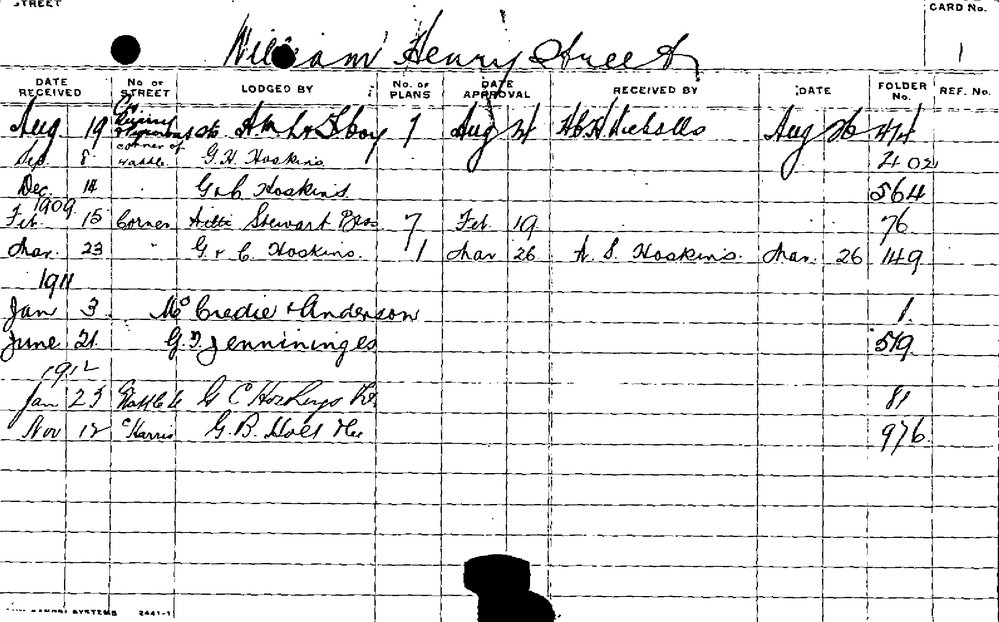 STREET
CARD No.
William Henry Street
1
DATE RECEIVED No. OF STREET LODGED BY No. OF PLANS DATE APPROVAL RECEIVED BY DATE FOLDER No. REF. No.
Aug. 19 1 Aug 24 H.C.H. Nicholls Aug 26 474
corner of
Sep. 8 Wattle G. H. Hoskins 402
Dec. 14 " G & C Hoskins 564
1909
Feb. 15 Corner Stewart Bros 7 Feb. 19 76
Mar. 23 " G & C. Hoskins. 1 Mar 26 A. S. Hoskins. Mar. 26 149
1911
Jan 3 McCredie & Anderson 1.
June 21. G. D. Jenninings 519.
1912
Jan 23 G C Hoskings 81
Nov 12 Harris G. B. Holt 976
SYSTEMS 2441-1